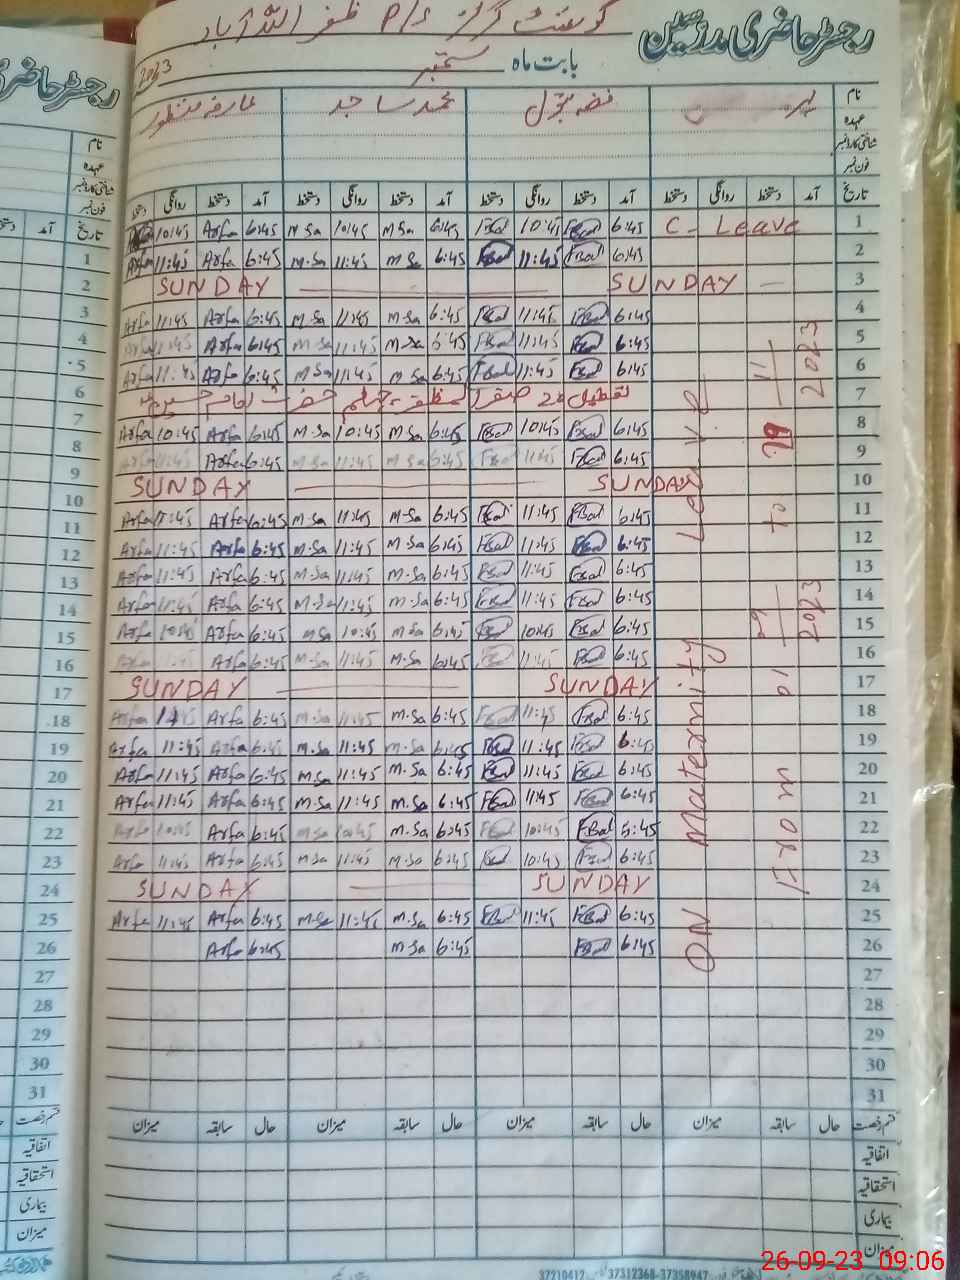 رجسٹر حاضری مدرسین
گورنمنٹ گرلز P/S ظفر اللہ آباد
بابت ماہ ستمبر 2023
نام
محمد ساجد
عہدہ
شناختی کارڈ نمبر
فون نمبر
تاریخ آمد دستخط روانگی دستخط آمد دستخط روانگی دستخط آمد دستخط روانگی دستخط آمد دستخط روانگی دستخط
1 C - Leave 6:45 FBal 10:45 FBal 6:45 M Sa 10:45 M Sa 6:45 Arfa 10:45
2 6:45 FBal 11:45 FBal 6:45 M Sa 11:45 M.Sa 6:45 Arfa 11:45 Arfa
3 SUNDAY SUNDAY
4 6:45 FBal 11:45 FBal 6:45 M.Sa 11:45 M.Sa 6:45 Arfa 11:45 Arfa
5 6:45 FBal 11:45 FBal 6:45 M.Sa 11:45 M.Sa 6:45 Arfa 11:45 Arfa
6 6:45 FBal 11:45 FBal 6:45 M.Sa 11:45 M.Sa 6:45 Arfa 11:45 Arfa
7 تعطیل 20 صفر المظفر چہلم حضرت امام حسین
8 6:45 FBal 10:45 FBal 6:45 M.Sa 10:45 M.Sa 6:45 Arfa 10:45 Arfa
9 6:45 FBal 11:45 FBal 6:45 M.Sa 11:45 M.Sa 6:45 Arfa 11:45 Arfa
10 SUNDAY SUNDAY
11 6:45 FBal 11:45 FBal 6:45 M.Sa 11:45 M.Sa 6:45 Arfa 11:45 Arfa
12 6:45 FBal 11:45 FBal 6:45 M.Sa 11:45 M.Sa 6:45 Arfa 11:45 Arfa
13 6:45 FBal 11:45 FBal 6:45 M.Sa 11:45 M.Sa 6:45 Arfa 11:45 Arfa
14 6:45 FBal 11:45 FBal 6:45 M.Sa 11:45 M.Sa 6:45 Arfa 11:45 Arfa
15 6:45 FBal 10:45 FBal 6:45 M.Sa 10:45 M.Sa 6:45 Arfa 10:45 Arfa
16 6:45 FBal 11:45 FBal 6:45 M.Sa 11:45 M.Sa 6:45 Arfa
17 SUNDAY SUNDAY
18 6:45 FBal 11:45 FBal 6:45 M.Sa 11:45 M.Sa 6:45 Arfa Arfa
19 6:45 FBal 11:45 FBal 6:45 M.Sa 11:45 M.Sa 6:45 Arfa 11:45 Arfa
20 6:45 FBal 11:45 FBal 6:45 M.Sa 11:45 M.Sa 6:45 Arfa 11:45 Arfa
21 6:45 FBal 11:45 FBal 6:45 M.Sa 11:45 M.Sa 6:45 Arfa 11:45 Arfa
22 FBal 10:45 FBal 6:45 M.Sa 10:45 M.Sa 6:45 Arfa 10:45 Arfa
23 6:45 FBal 10:45 FBal 6:45 M.Sa 11:45 M.Sa 6:45 Arfa 11:45 Arfa
24 SUNDAY SUNDAY
25 6:45 FBal 11:45 FBal 6:45 M.Sa 11:45 M.Sa 6:45 Arfa 11:45 Arfa
26 6:45 FBal 6:45 M.Sa 6:45 Arfa
27
28
29
30
31
ON Maternity Leave
From
2023
to
2023
قسم رخصت حال سابقہ میزان حال سابقہ میزان حال سابقہ میزان حال سابقہ میزان
اتفاقیہ
استحقاقیہ
بیماری
میزان
37210412 37312368-37358947
رجسٹر حاضری
نام
عہدہ
شناختی کارڈ نمبر
فون نمبر
تاریخ آمد دستخط
1
2
3
4
5
6
7
8
9
10
11
12
13
14
15
16
17
18
19
20
21
22
23
24
25
26
27
28
29
30
31
قسم رخصت
اتفاقیہ
استحقاقیہ
بیماری
میزان
26-09-23 09:06